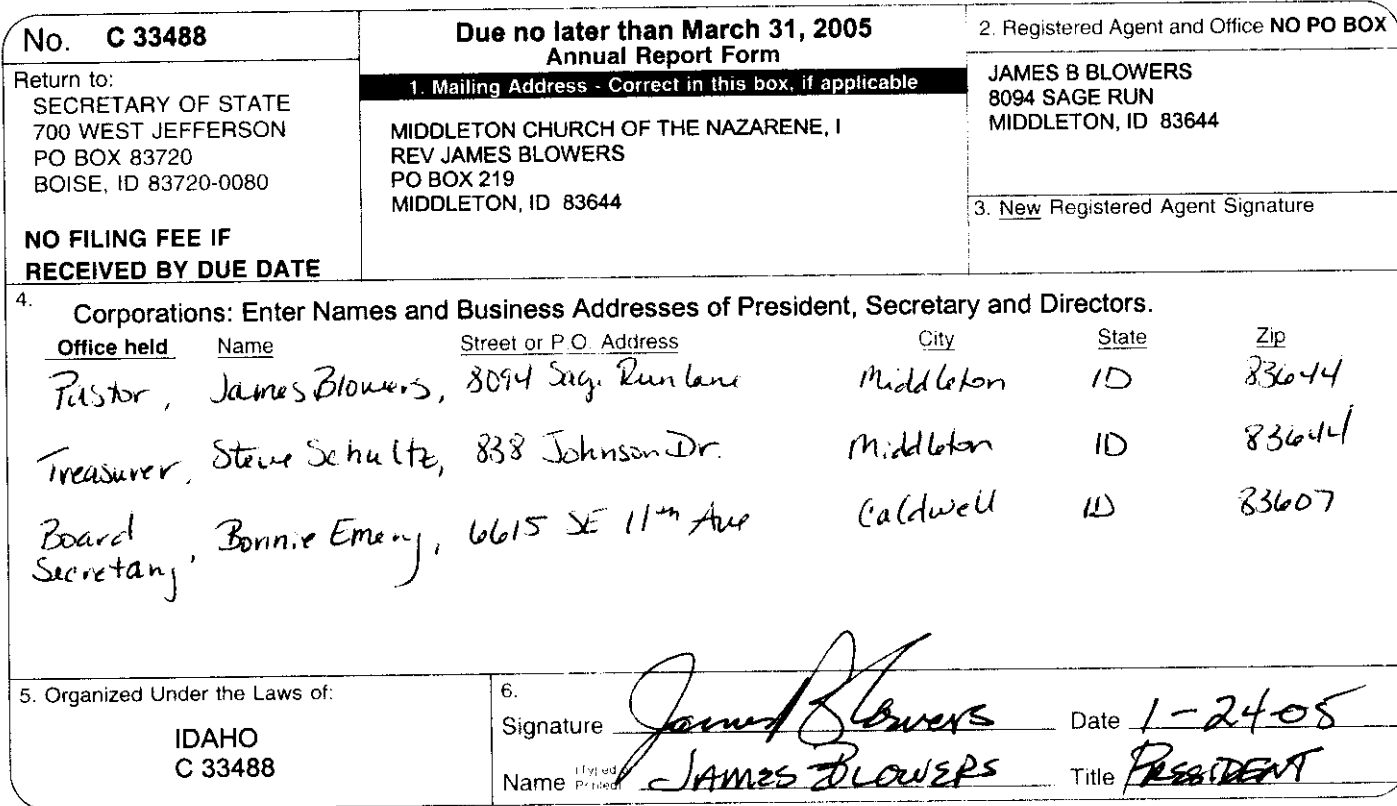 No. C 33488
Return to:
SECRETARY OF STATE
700 WEST JEFFERSON
PO BOX 83720
BOISE, ID 83720-0080
NO FILING FEE IF
RECEIVED BY DUE DATE
Due no later than March 31, 2005
Annual Report Form
1. Mailing Address - Correct in this box, if applicable
MIDDLETON CHURCH OF THE NAZARENE, I
REV JAMES BLOWERS
PO BOX 219
MIDDLETON, ID 83644
2. Registered Agent and Office NO PO BOX
JAMES B BLOWERS
8094 SAGE RUN
MIDDLETON, ID 83644
3. New Registered Agent Signature
4. Corporations: Enter Names and Business Addresses of President, Secretary and Directors.
Office held Name Street or P.O. Address City State Zip
Pastor, James Blowers, 8094 Sage Run Lane Middleton ID 83644
Treasurer, Steve Schultz, 838 Johnson Dr. Middleton ID 83644
Board Secretary, Bonnie Emery, 6615 SE 11th Ave Caldwell ID 83607
5. Organized Under the Laws of:
IDAHO
C 33488
6.
Signature James B Blowers Date 1-24-05
Name (Typed or Printed) JAMES BLOWERS Title PRESIDENT